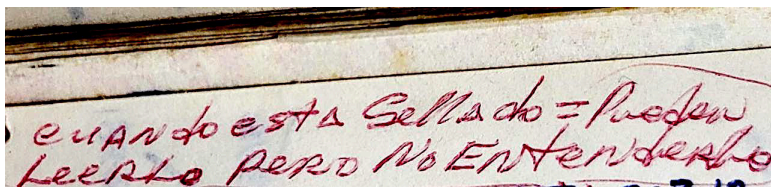 cuando estA Sellado = Pueden
LeerLo pero No Entenderlo